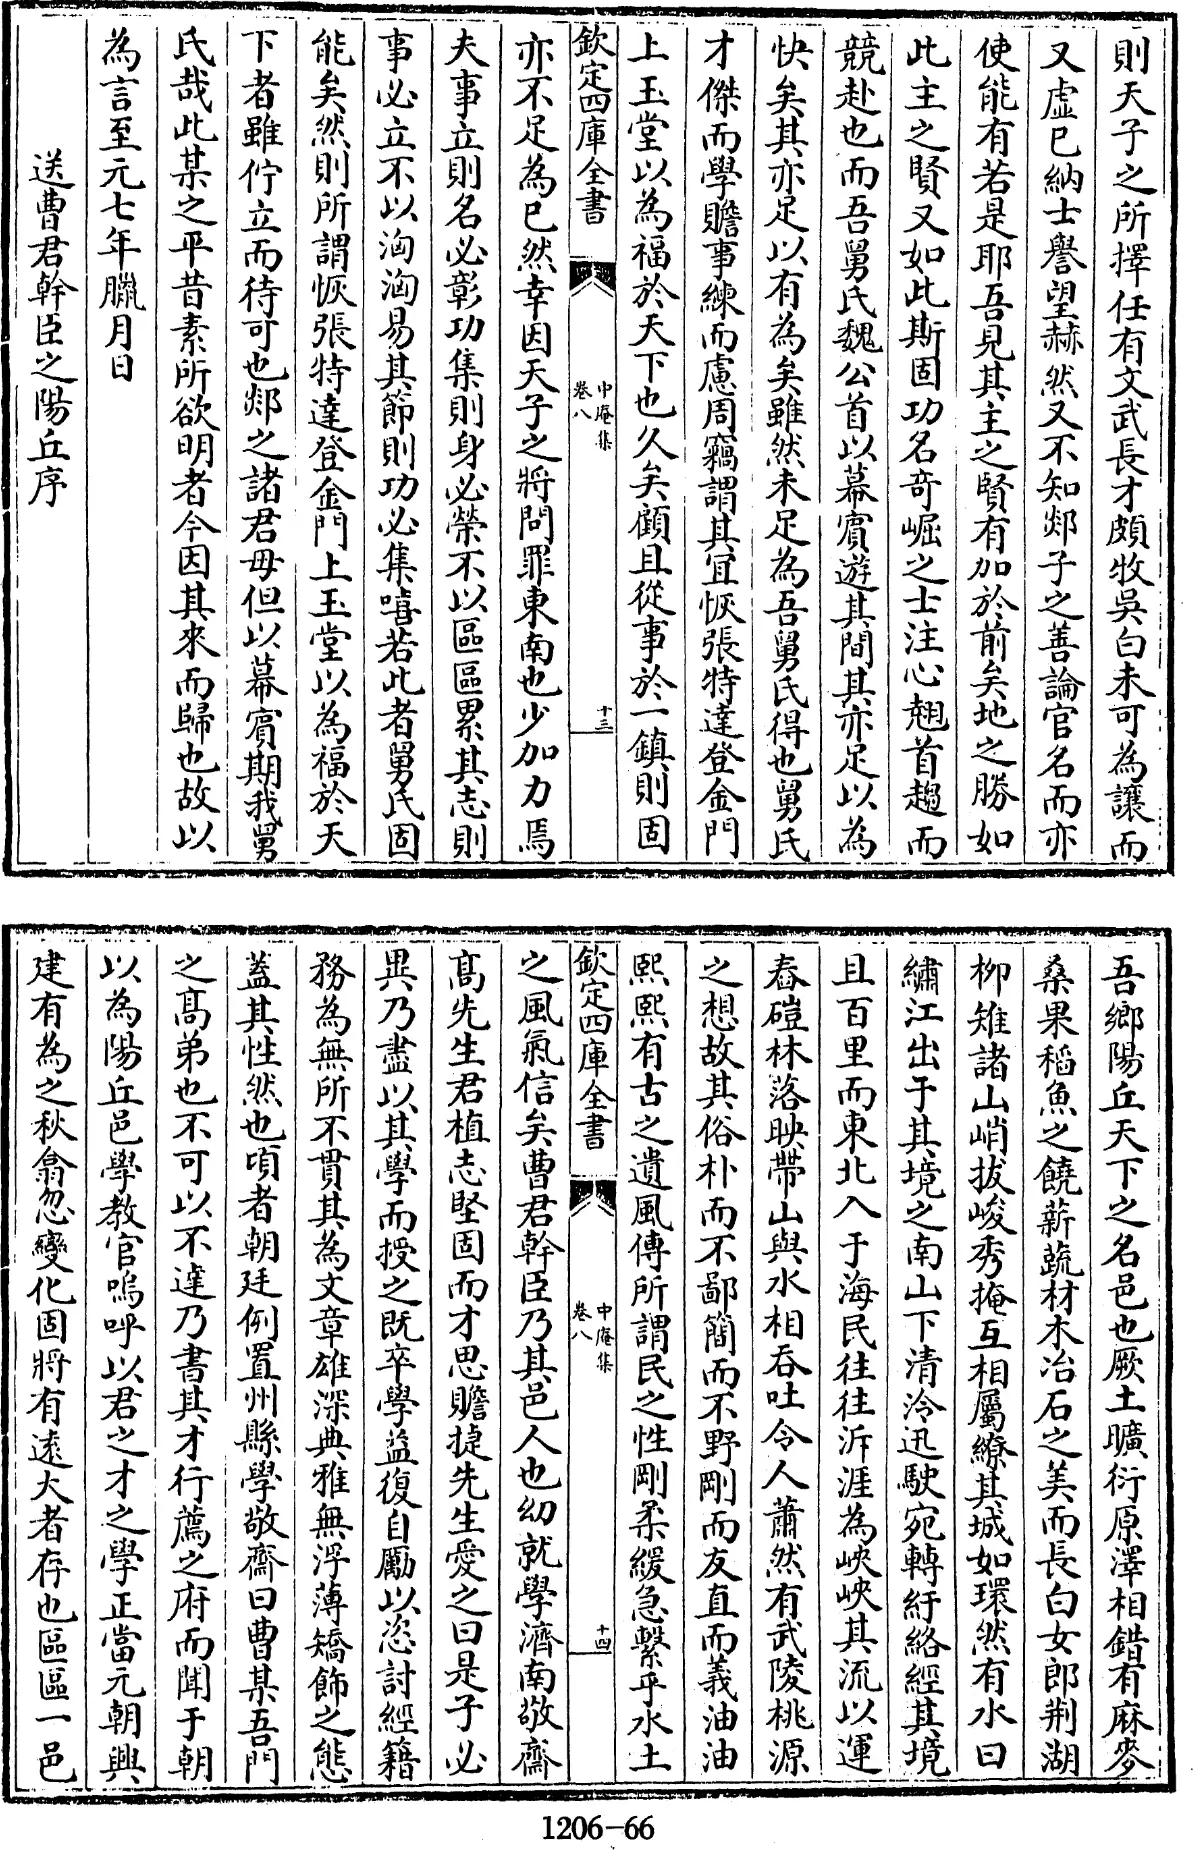 則天子之所擇任有文武長才頗牧吳白未可為讓而
又虛已納士譽望赫然又不知郯子之善論官名而亦
使能有若是耶吾見其主之賢有加於前矣地之勝如
此主之賢又如此斯固功名奇崛之士注心翹首趨而
競赴也而吾舅氏魏公首以幕賓遊其間其亦足以為
快矣其亦足以有為矣雖然未足為吾舅氏得也舅氏
才傑而學贍事練而慮周竊謂其宜恢張特達登金門
上玉堂以為福於天下也久矣顧且從事於一鎮則固
欽定四庫全書
中庵集
卷八
十三
亦不足為已然幸因天子之將問罪東南也少加力焉
夫事立則名必彰功集則身必榮不以區區累其志則
事必立不以洶洶易其節則功必集嘻若此者舅氏固
能矣然則所謂恢張特達登金門上玉堂以為福於天
下者雖佇立而待可也郯之諸君毋但以幕賓期我舅
氏哉此某之平昔素所欲明者今因其來而歸也故以
為言至元七年臘月日
送曹君幹臣之陽丘序
吾鄉陽丘天下之名邑也厥土曠衍原澤相錯有麻麥
桑果稻魚之饒薪蔬材木冶石之美而長白女郎荆湖
柳雉諸山峭拔峻秀掩互相屬繚其城如環然有水曰
繡江出于其境之南山下清泠迅駛宛轉紆絡經其境
且百里而東北入于海民往往泝涯為峽峽其流以運
舂磑林落映帶山與水相吞吐令人蕭然有武陵桃源
之想故其俗朴而不鄙簡而不野剛而友直而義油油
熙熙有古之遺風傳所謂民之性剛柔緩急繫乎水土
欽定四庫全書
中庵集
卷八
十四
之風氣信矣曹君幹臣乃其邑人也幼就學濟南敬齋
髙先生君植志堅固而才思贍捷先生愛之曰是子必
異乃盡以其學而授之既卒學益復自勵以恣討經籍
務為無所不貫其為文章雄深典雅無浮薄矯飾之態
蓋其性然也頃者朝廷例置州縣學敬齋曰曹某吾門
之髙弟也不可以不達乃書其才行薦之府而聞于朝
以為陽丘邑學教官嗚呼以君之才之學正當元朝興
建有為之秋翕忽變化固將有遠大者存也區區一邑
1206-66